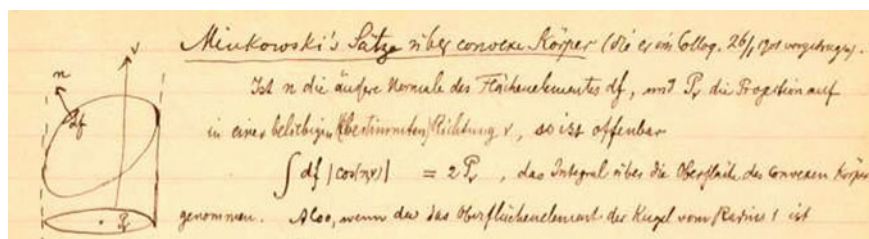 Minkowski's Sätze über convexe Körper (die er im Colloq. 26/, 1901 vorgetragen).
Ist n die äußere Normale des Flächenelementes df, und Pᵥ die Projection auf
in einer beliebigen (bestimmten) Richtung ν, so ist offenbar
∫ df |cos(n,ν)| = 2 Pᵥ, das Integral über die Oberfläche des convexen Körpers
genommen. Also, wenn dω das Oberflächenelement der Kugel vom Radius 1 ist
n
ν
df
Pᵥ